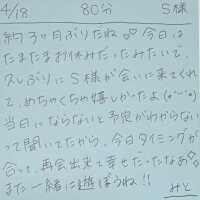 4/18 80分 S様
約3ヶ月ぶりだね♡ 今日は
たまたまお休みだったみたいで、
久しぶりにS様が会いに来てくれ
て、めちゃくちゃ嬉しかったよ(*´˘`*)
当日にならないと予定がわからない
って聞いてたから、今日タイミングが
合って、再会出来て幸せだったなぁ♡
また一緒に遊ぼうね!!
みと